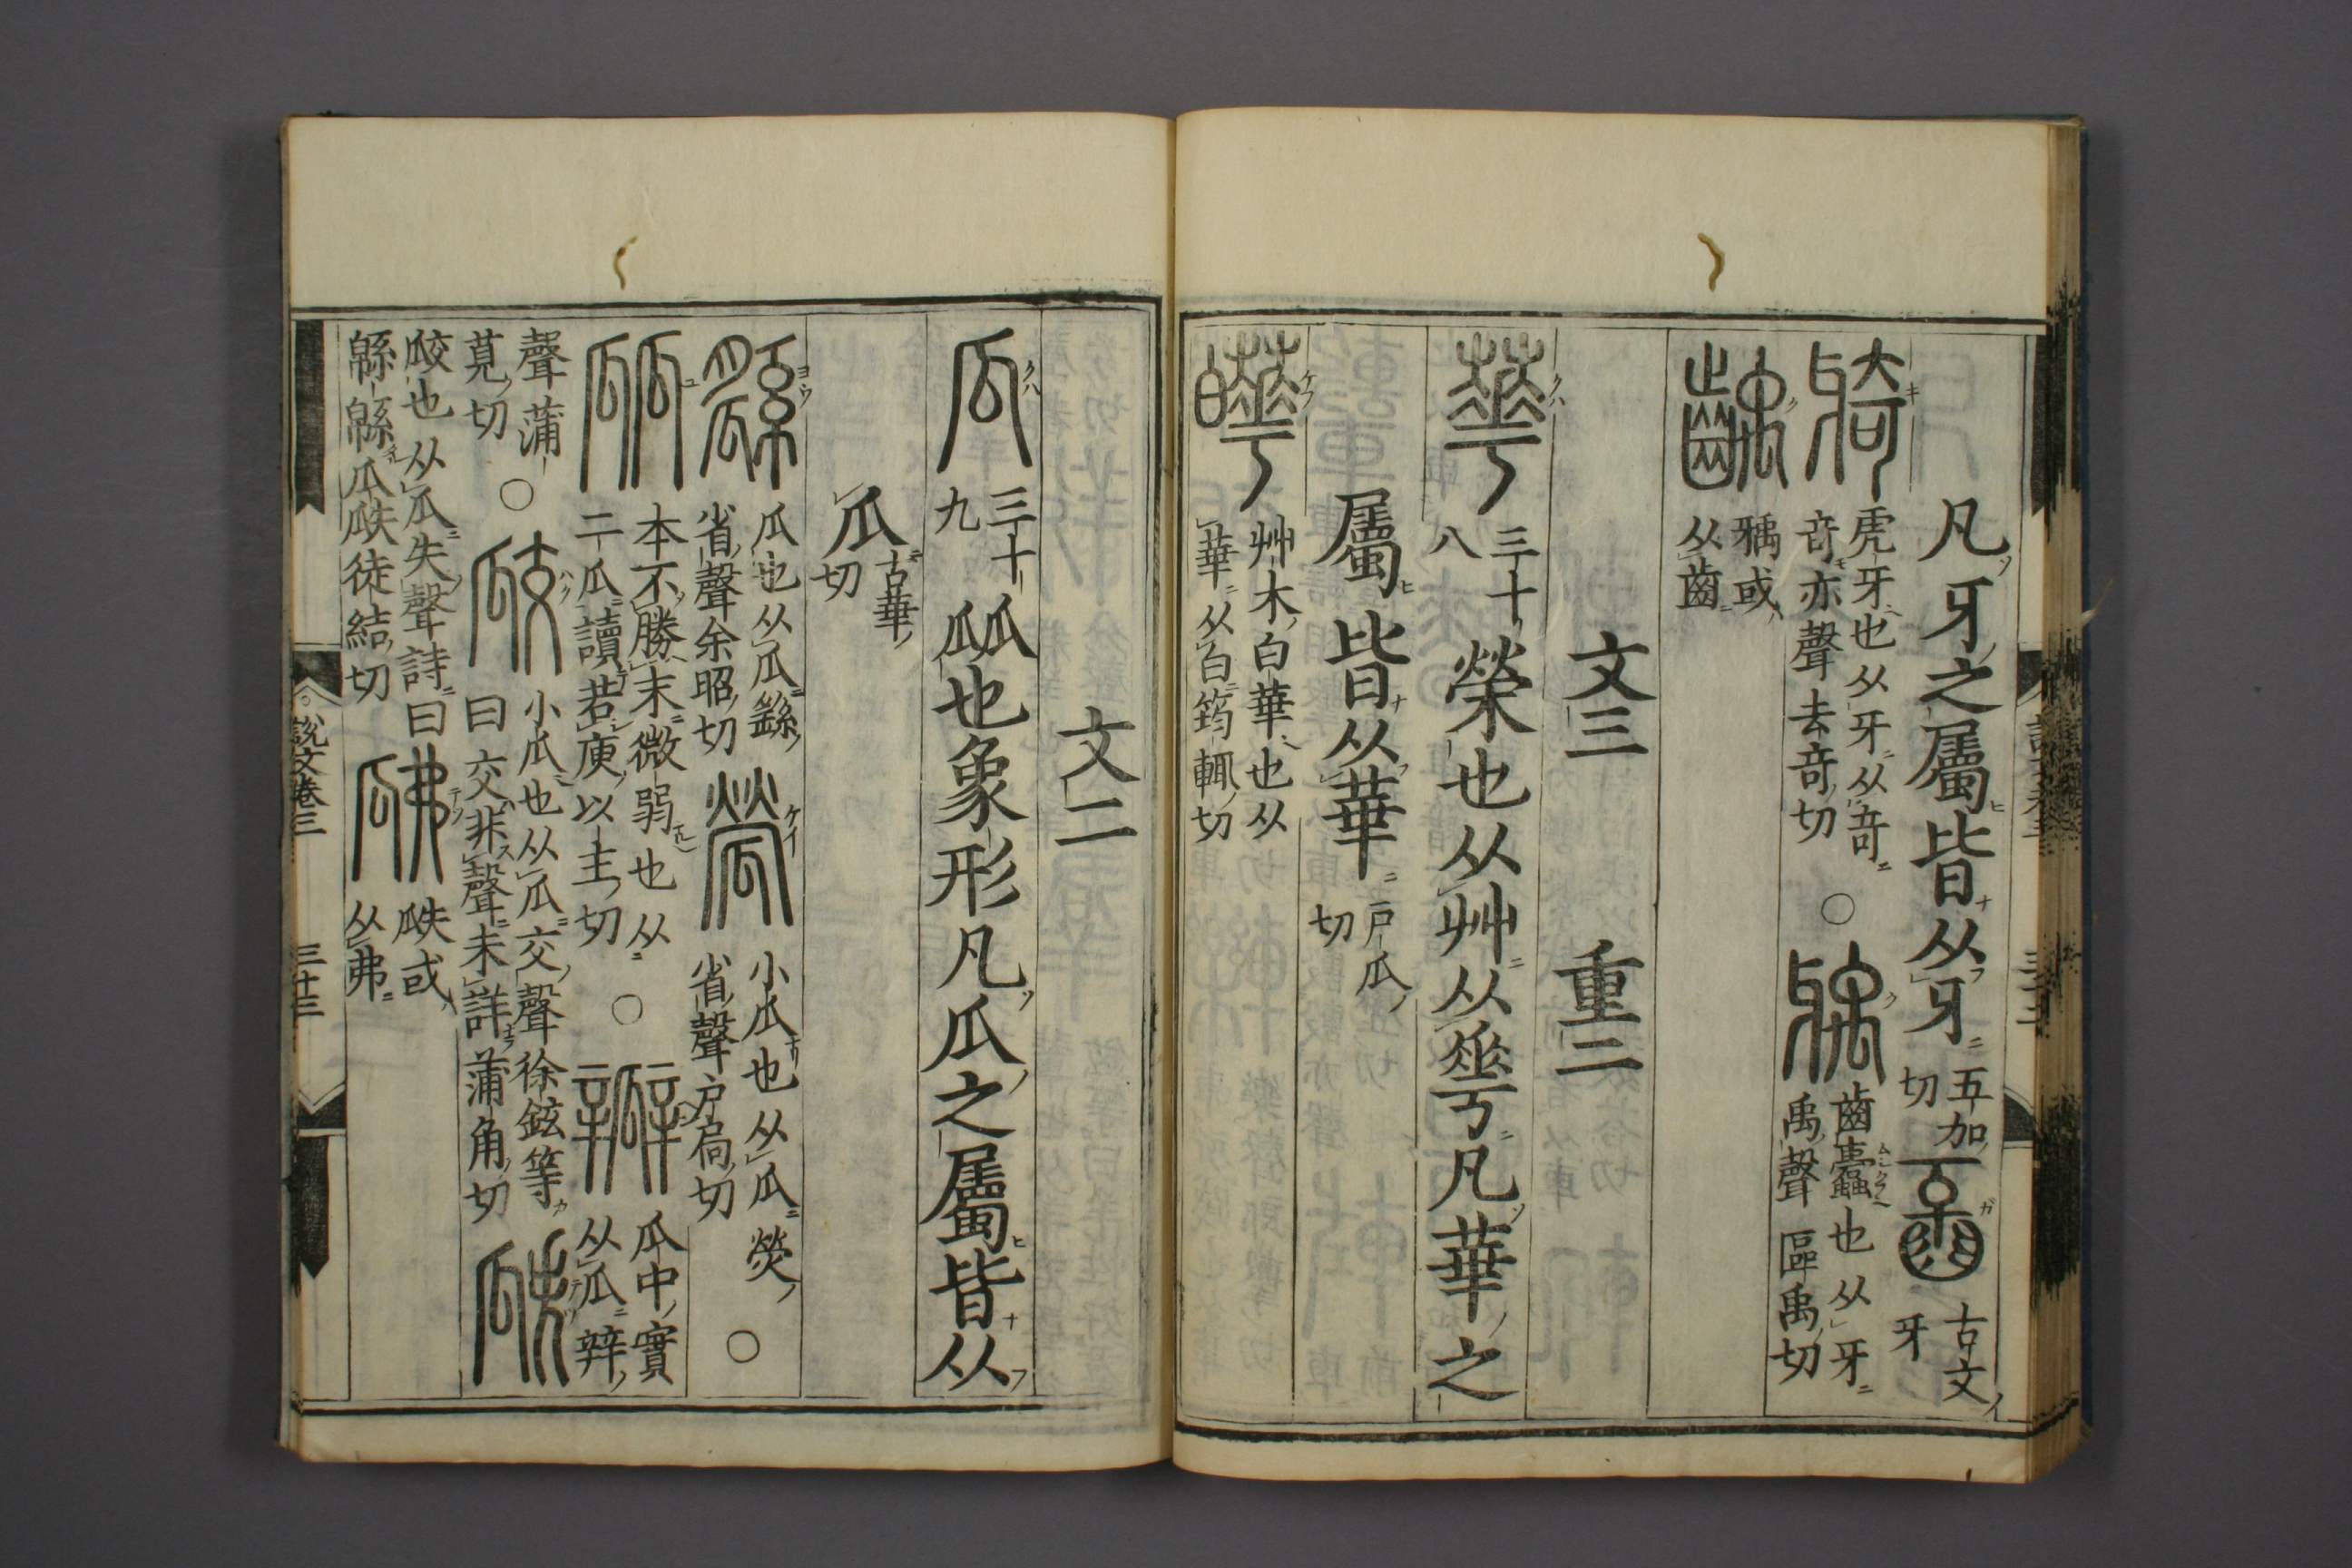 凡牙之屬皆从牙 五加切 古文牙
虎牙也从牙从奇
奇亦聲去奇切
○ 齒蠹也从牙
禹聲區禹切
𤘐或
从齒
文三 重二
華 三十八 榮也从艸从𠌶凡華之
屬皆从華 戶瓜切
皣 艸木白華也从
華从白筠輒切
文二
瓜 三十九 㼌也象形凡瓜之屬皆从
瓜 古華切
瓜也从瓜繇
省聲余昭切
小瓜也从瓜熒
省聲戶扃切 ○
㼌 本不勝末微弱也从
二瓜讀若庾以主切 ○
瓣 瓜中實
从瓜辡
聲蒲
莧切 ○
㼎 小瓜也从瓜交聲徐鉉等
曰交非聲未詳蒲角切
瓞 㼎也从瓜失聲詩曰
緜緜瓜瓞徒結切
瓞或
从弗
説文卷三 三十三